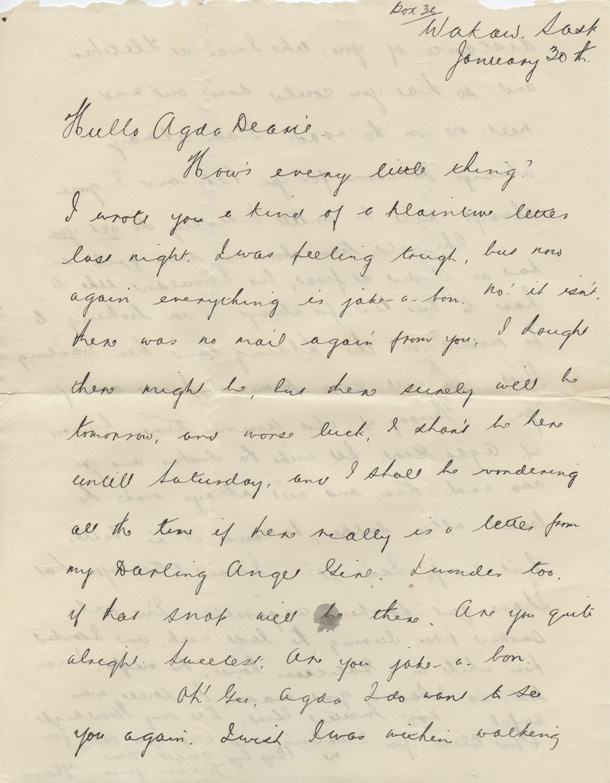 Box 32
Wakaw. Sask
January 30th.
Hullo Agda Dearie.
How's every little thing?
I wrote you a kind of a plaintive letter
last night. I was feeling tough, but now
again everything is joke-a-bon. No! it isn't.
there was no mail again from you. I thought
there might be, but there surely will be
tomorrow, and worse luck, I shan't be here
untill Saturday, and I shall be wondering
all the time if there really is a letter from
my Darling Angel Girl. I wonder too.
if that snap will be there. Are you quite
alright. Sweetest. Are you joke-a-bon.
Oh! Gee, Agda I do want to see
you again. I wish I was within walking